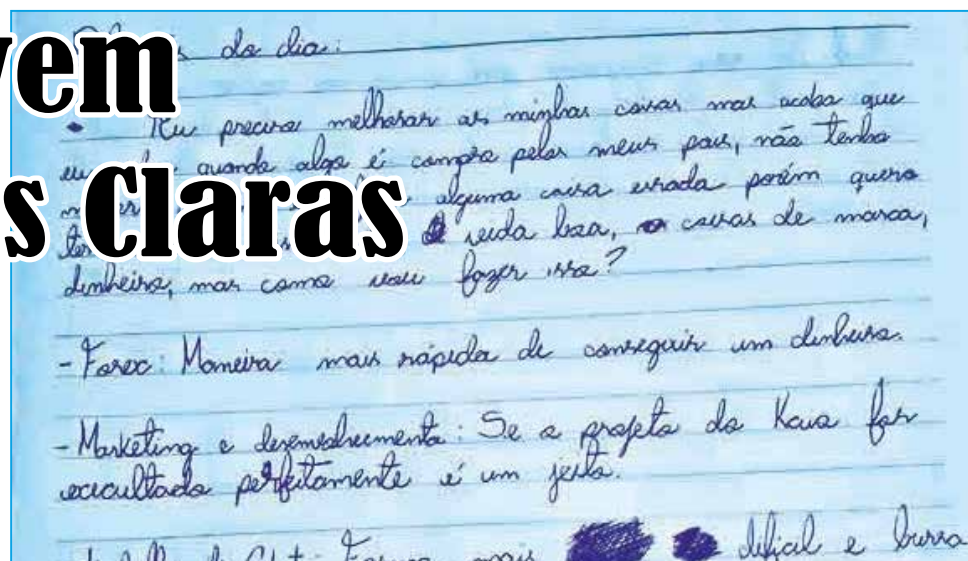 vem
s Claras
do dia:
• Eu preciso melhorar as minhas coisas mas acaba que
eu quando algo é compro pelos meus pais, não tenho
alguma coisa errada porém quero
ter vida boa, coisas de marca,
dinheiro, mas como vou fazer isso?
- Forex: Maneira mais rápida de conseguir um dinheiro.
- Marketing e desenvolvimento: Se o projeto do Kaua for
excultado perfeitamente é um jeito.
mais difical e burra